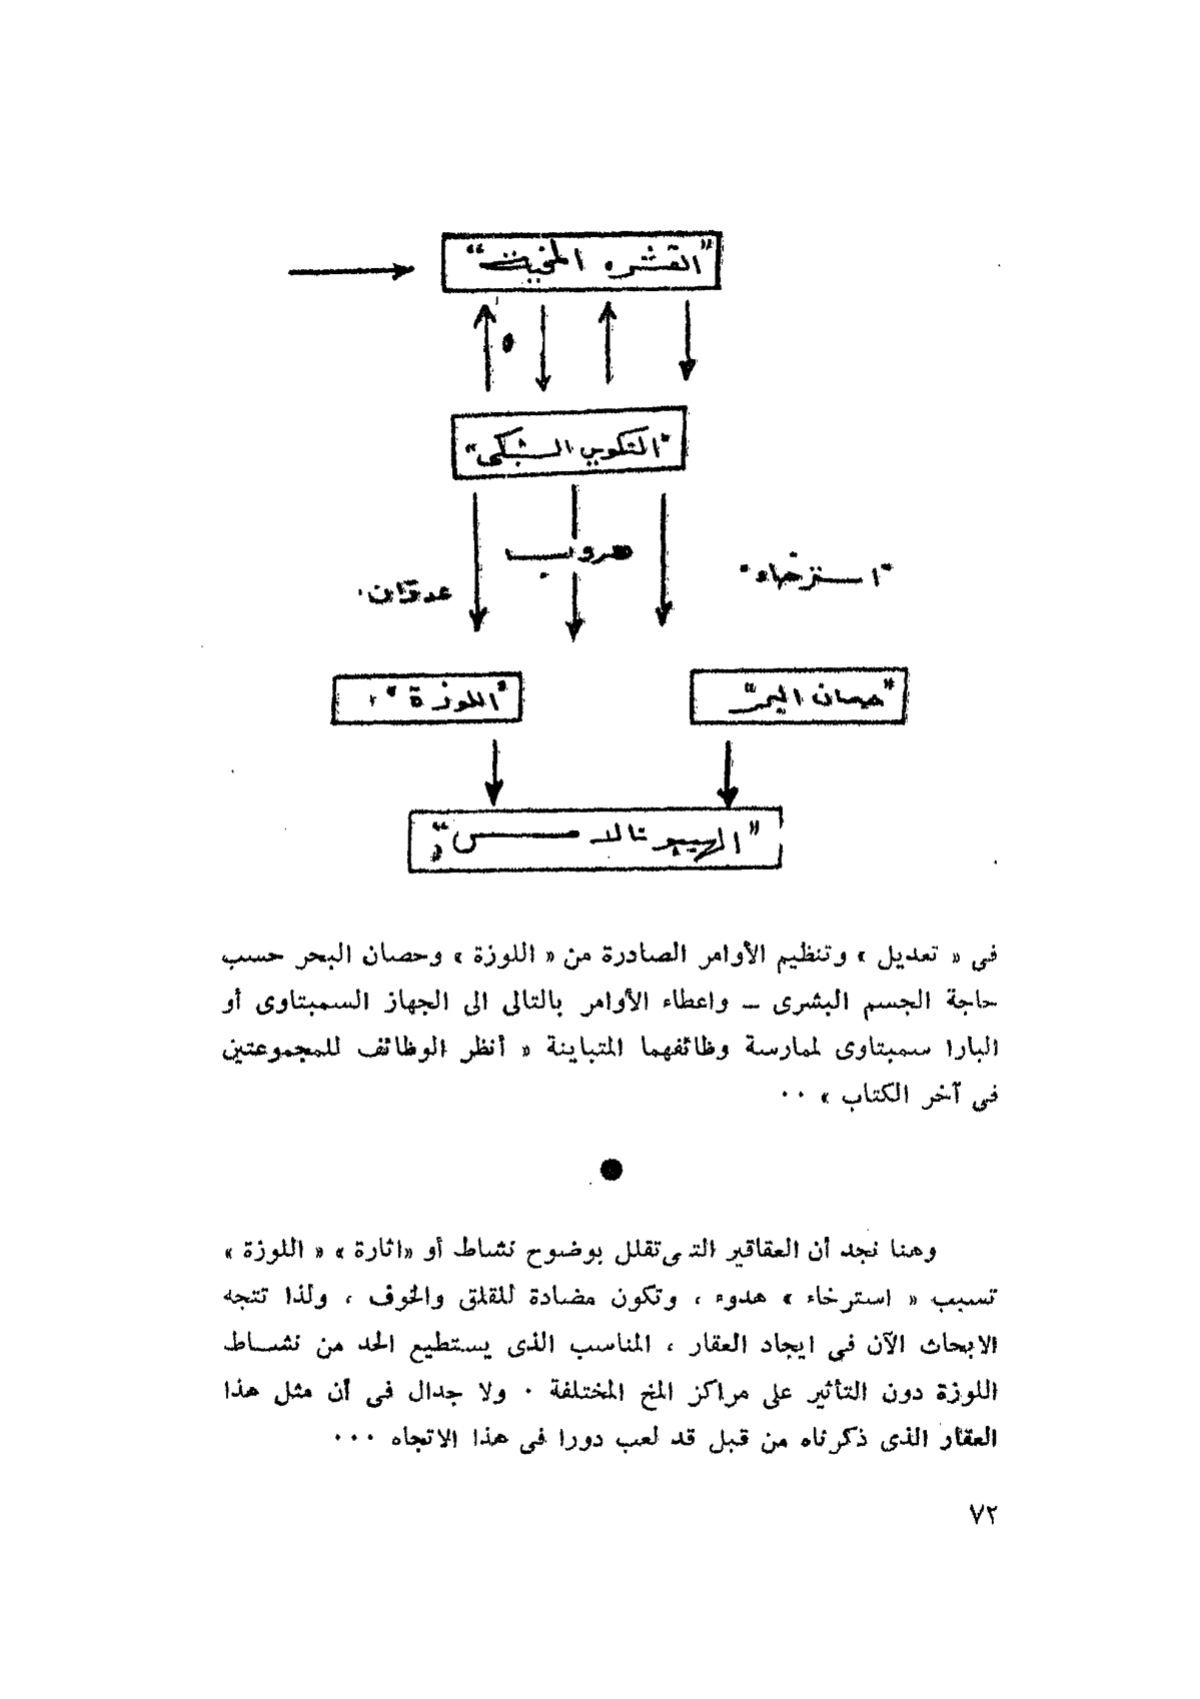 "القشره المخية"
"التكوين الشبكى"
هروب
"استرخاء"
عدوان
"حصان البحر"
"اللوزة"
"الهيبوتالامس"
فى « تعديل » وتنظيم الأوامر الصادرة من « اللوزة » وحصان البحر حسب
حاجة الجسم البشرى ــ واعطاء الأوامر بالتالى الى الجهاز السمبتاوى أو
البارا سمبتاوى لممارسة وظائفهما المتباينة « أنظر الوظائف للمجموعتين
فى آخر الكتاب » ٠٠
وهنا نجد أن العقاقير التى تقلل بوضوح نشاط أو «اثارة» « اللوزة »
تسبب « استرخاء » هدوء ، وتكون مضادة للقلق والخوف ، ولذا تتجه
الابحاث الآن فى ايجاد العقار ، المناسب الذى يستطيع الحد من نشاط
اللوزة دون التأثير على مراكز المخ المختلفة ٠ ولا جدال فى أن مثل هذا
العقار الذى ذكرناه من قبل قد لعب دورا فى هذا الاتجاه ٠٠٠
٧٢